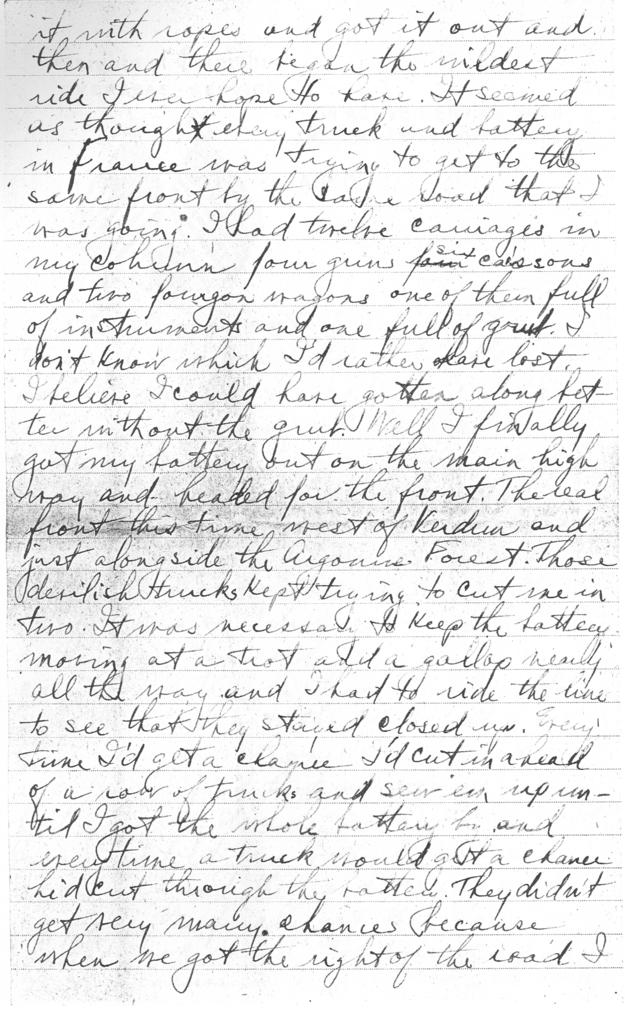 it with ropes and got it out and
then and there began the wildest
ride I ever hope to have. It seemed
as though every truck and battery
in France was trying to get to the
same front by the same road that I
was going. I had twelve carriages in
my column four guns four six caissons
and two fourgon wagons one of them full
of instruments and one full of grub. I
don't know which I'd rather have lost.
I believe I could have gotten along bet-
ter without the grub. Well I finally
got my battery out on the main high
way and headed for the front. The real
front this time west of Verdun and
just alongside the Argonne Forest. Those
devilish trucks kept trying to cut me in
two. It was necessary to keep the battery
moving at a trot and a gallop nearly
all the way and I had to ride the line
to see that they stayed closed up. Every
time I'd get a chance I'd cut in ahead
of a row of trucks and sew em up un-
til I got the whole battery by and
every time a truck would get a chance
he'd cut through the battery. They didn't
get very many chances because
when we got the right of the road I